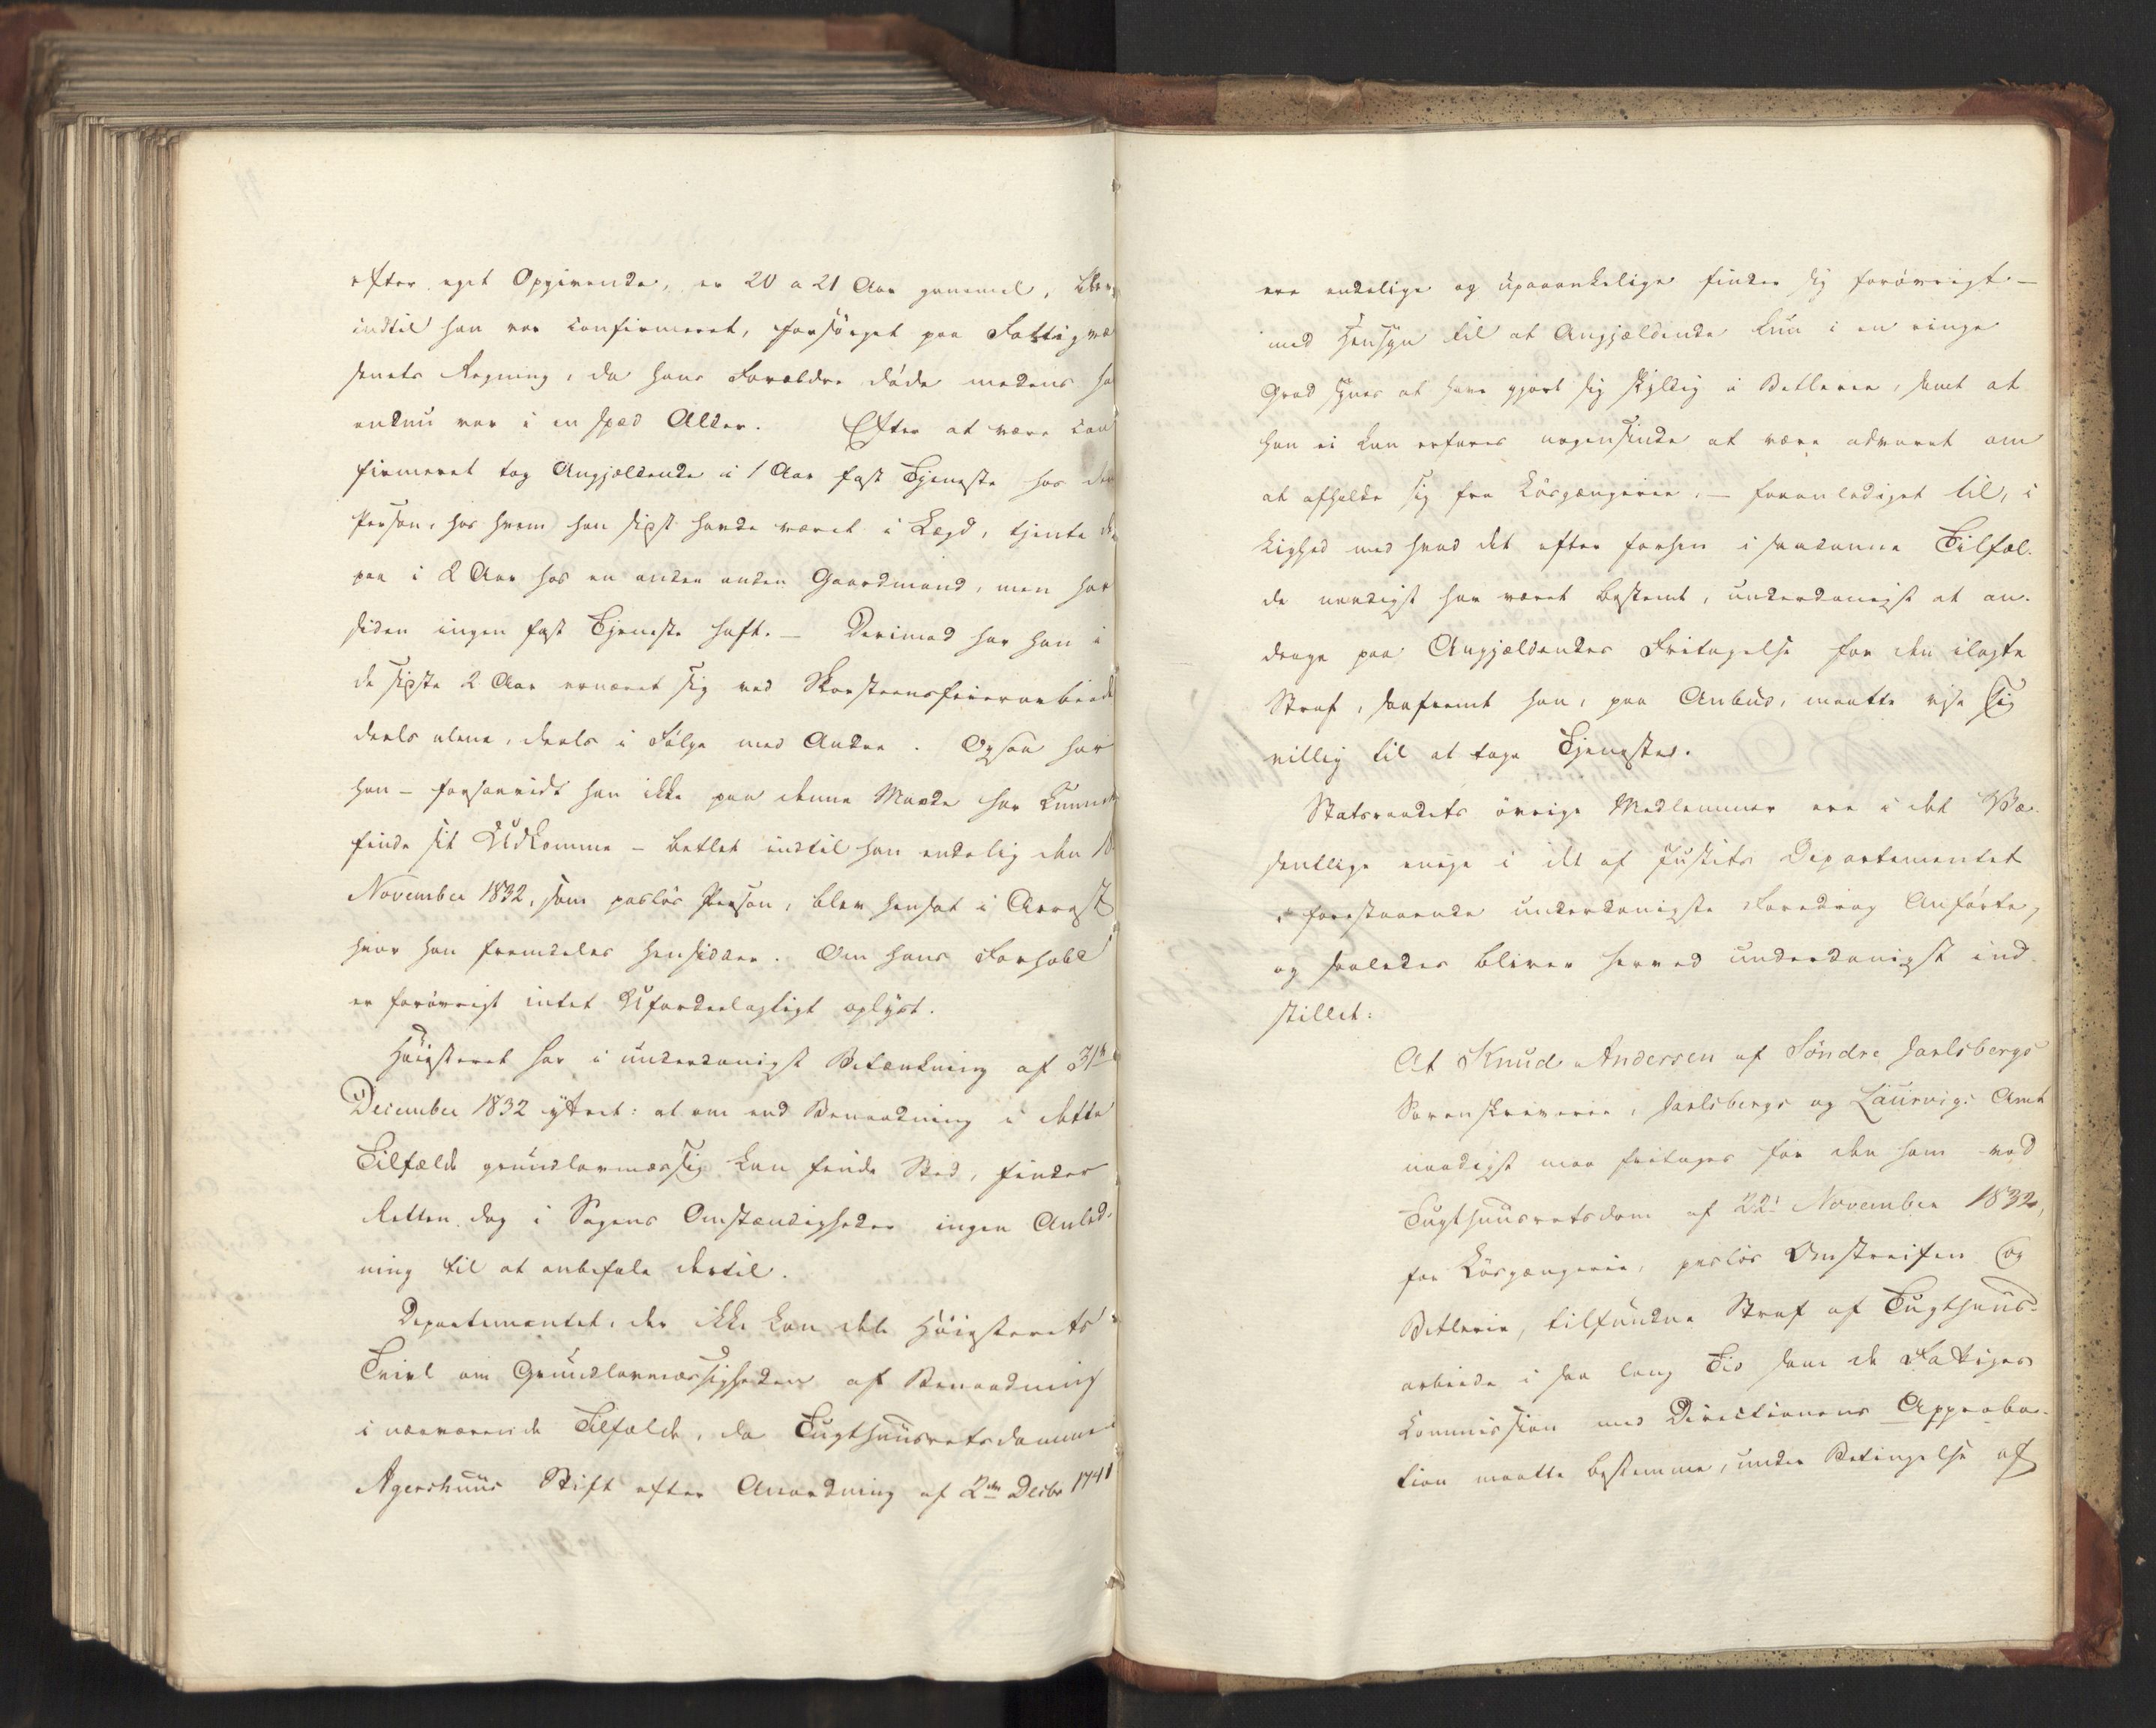 efter eget Opgivende, er 20 a 21 Aar gammel, blev
indtil han var confirmeret, forsörget paa Fattigvæ
senets Regning, da hans Forældre döde medens ha
endnu var i en spæd Alder. Efter at være con
firmeret tog Angjældende i 1 Aar fast Tjeneste hos den
Person, hos hvem han sidst havde været i Lægd, tjente der
paa i 2 Aar hos en anden Gaardmand, men har
siden ingen fast Tjeneste haft. – Derimod har han i
de sidste 2 Aar ernæret sig ved Skorsteensfeierarbeide
deels alene, deels i Fölge med Andre. Ogsaa har
han – forsaavidt han ikke paa denne Maade har kunnet
finde sit Udkomme – betlet indtil han endelig den
November 1832, som paslös Person, blev hensat i Arrest
hvor han fremdeles hensidder. Om hans Forhold
er forövrigt intet Ufordeelagtigt oplyst.
Höiesteret har i underdanigst Betænkning af 31te
December 1832 yttret: at om end Benaadning i dette
Tilfælde grundlovmæssig kan finde Sted, finder
Retten dog i Sagens Omstændigheder ingen Anled-
ning til at anbefale dertil.
Departementet, der ikke kan dele Höiesterets
Tvivl om Grundlovmæssigheden af Benaadning
i nærværende Tilfælde, da Tugthuusretsdomme
Agershuus Stift efter Anordning af 2den Decbr 1741
ere endelige og upaaankelige finder sig forövrigt –
med Hensyn til at Angjældende kun i en ringe
Grad synes at have gjort sig skyldig i Betlerie, samt at
han ei kan erfares nogensinde at være advaret om
at afholde sig fra Lösgængerie, – foranlediget til, i
Lighed med hvad det efter forhen i saadanne Tilfæl-
de naadigst har været bestemt, underdanigst at an-
drage paa Angjældendes Fritagelse for den ilagte
Straf, saafremt han, paa Anbud, maatte vise sig
villig til at tage Tjeneste.
Statsraadets övrige Medlemmer ere i det Væ-
sentlige enige i det af Justits Departementet
i forestaaende underdanigste Foredrag Anförte,
og saaledes bliver herved underdanigst ind-
stillet:
At Knud Andersen af Söndre Jarlsbergs
Sorenskriverie, Jarlsbergs og Laurvigs Amt
naadigst maa fritages for den ham ved
Tugthuusretsdom af 22de November 1832,
for Lösgængerie, paslös Omstreifen og
Betlerie, tilfundne Straf af Tugthuus-
arbeide i saa lang Tid som de Fattiges
Kommission med Directionens Approba-
tion maatte bestemme, under Betingelse af